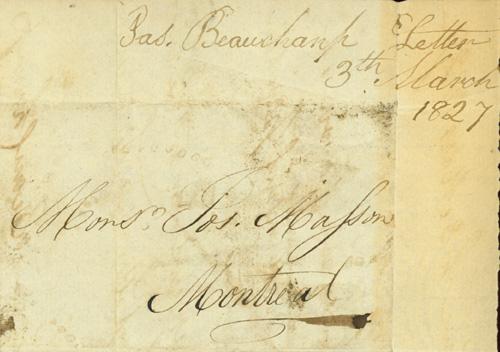 Bas. Beauchamp Letter
3th March
1827
Monsr. Jos. Masson
Montreal